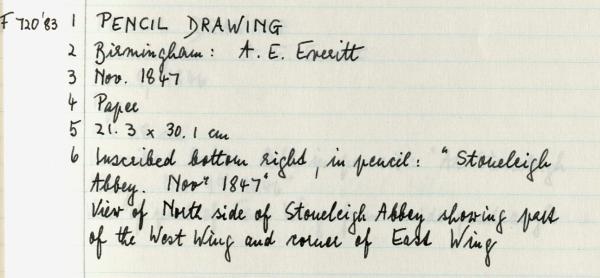 F 720'83 1 PENCIL DRAWING
2 Birmingham: A. E. Everitt
3 Nov. 1847
4 Paper
5 21.3 x 30.1 cm
6 Inscribed bottom right, in pencil: "Stoneleigh
Abbey. Novr 1847"
View of North side of Stoneleigh Abbey showing part
of the West Wing and corner of East Wing